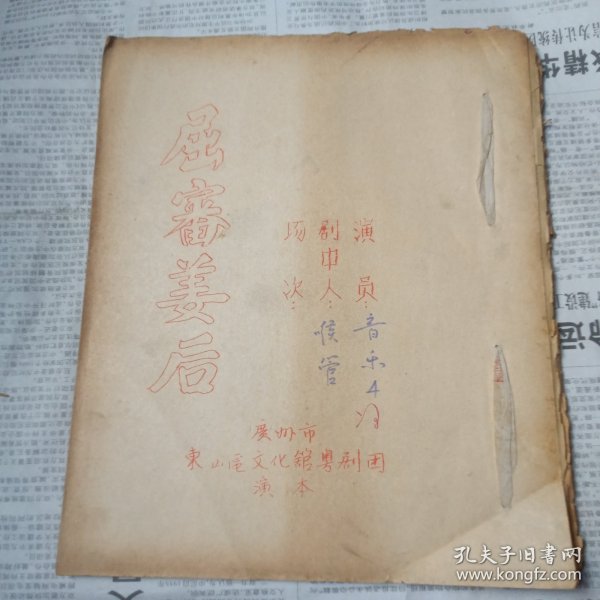 屈審姜后
演员：音乐4
剧中人：喉管
场次：
广州市
東山區文化館粤剧团
演本
孔夫子旧书网
www.kongfz.com